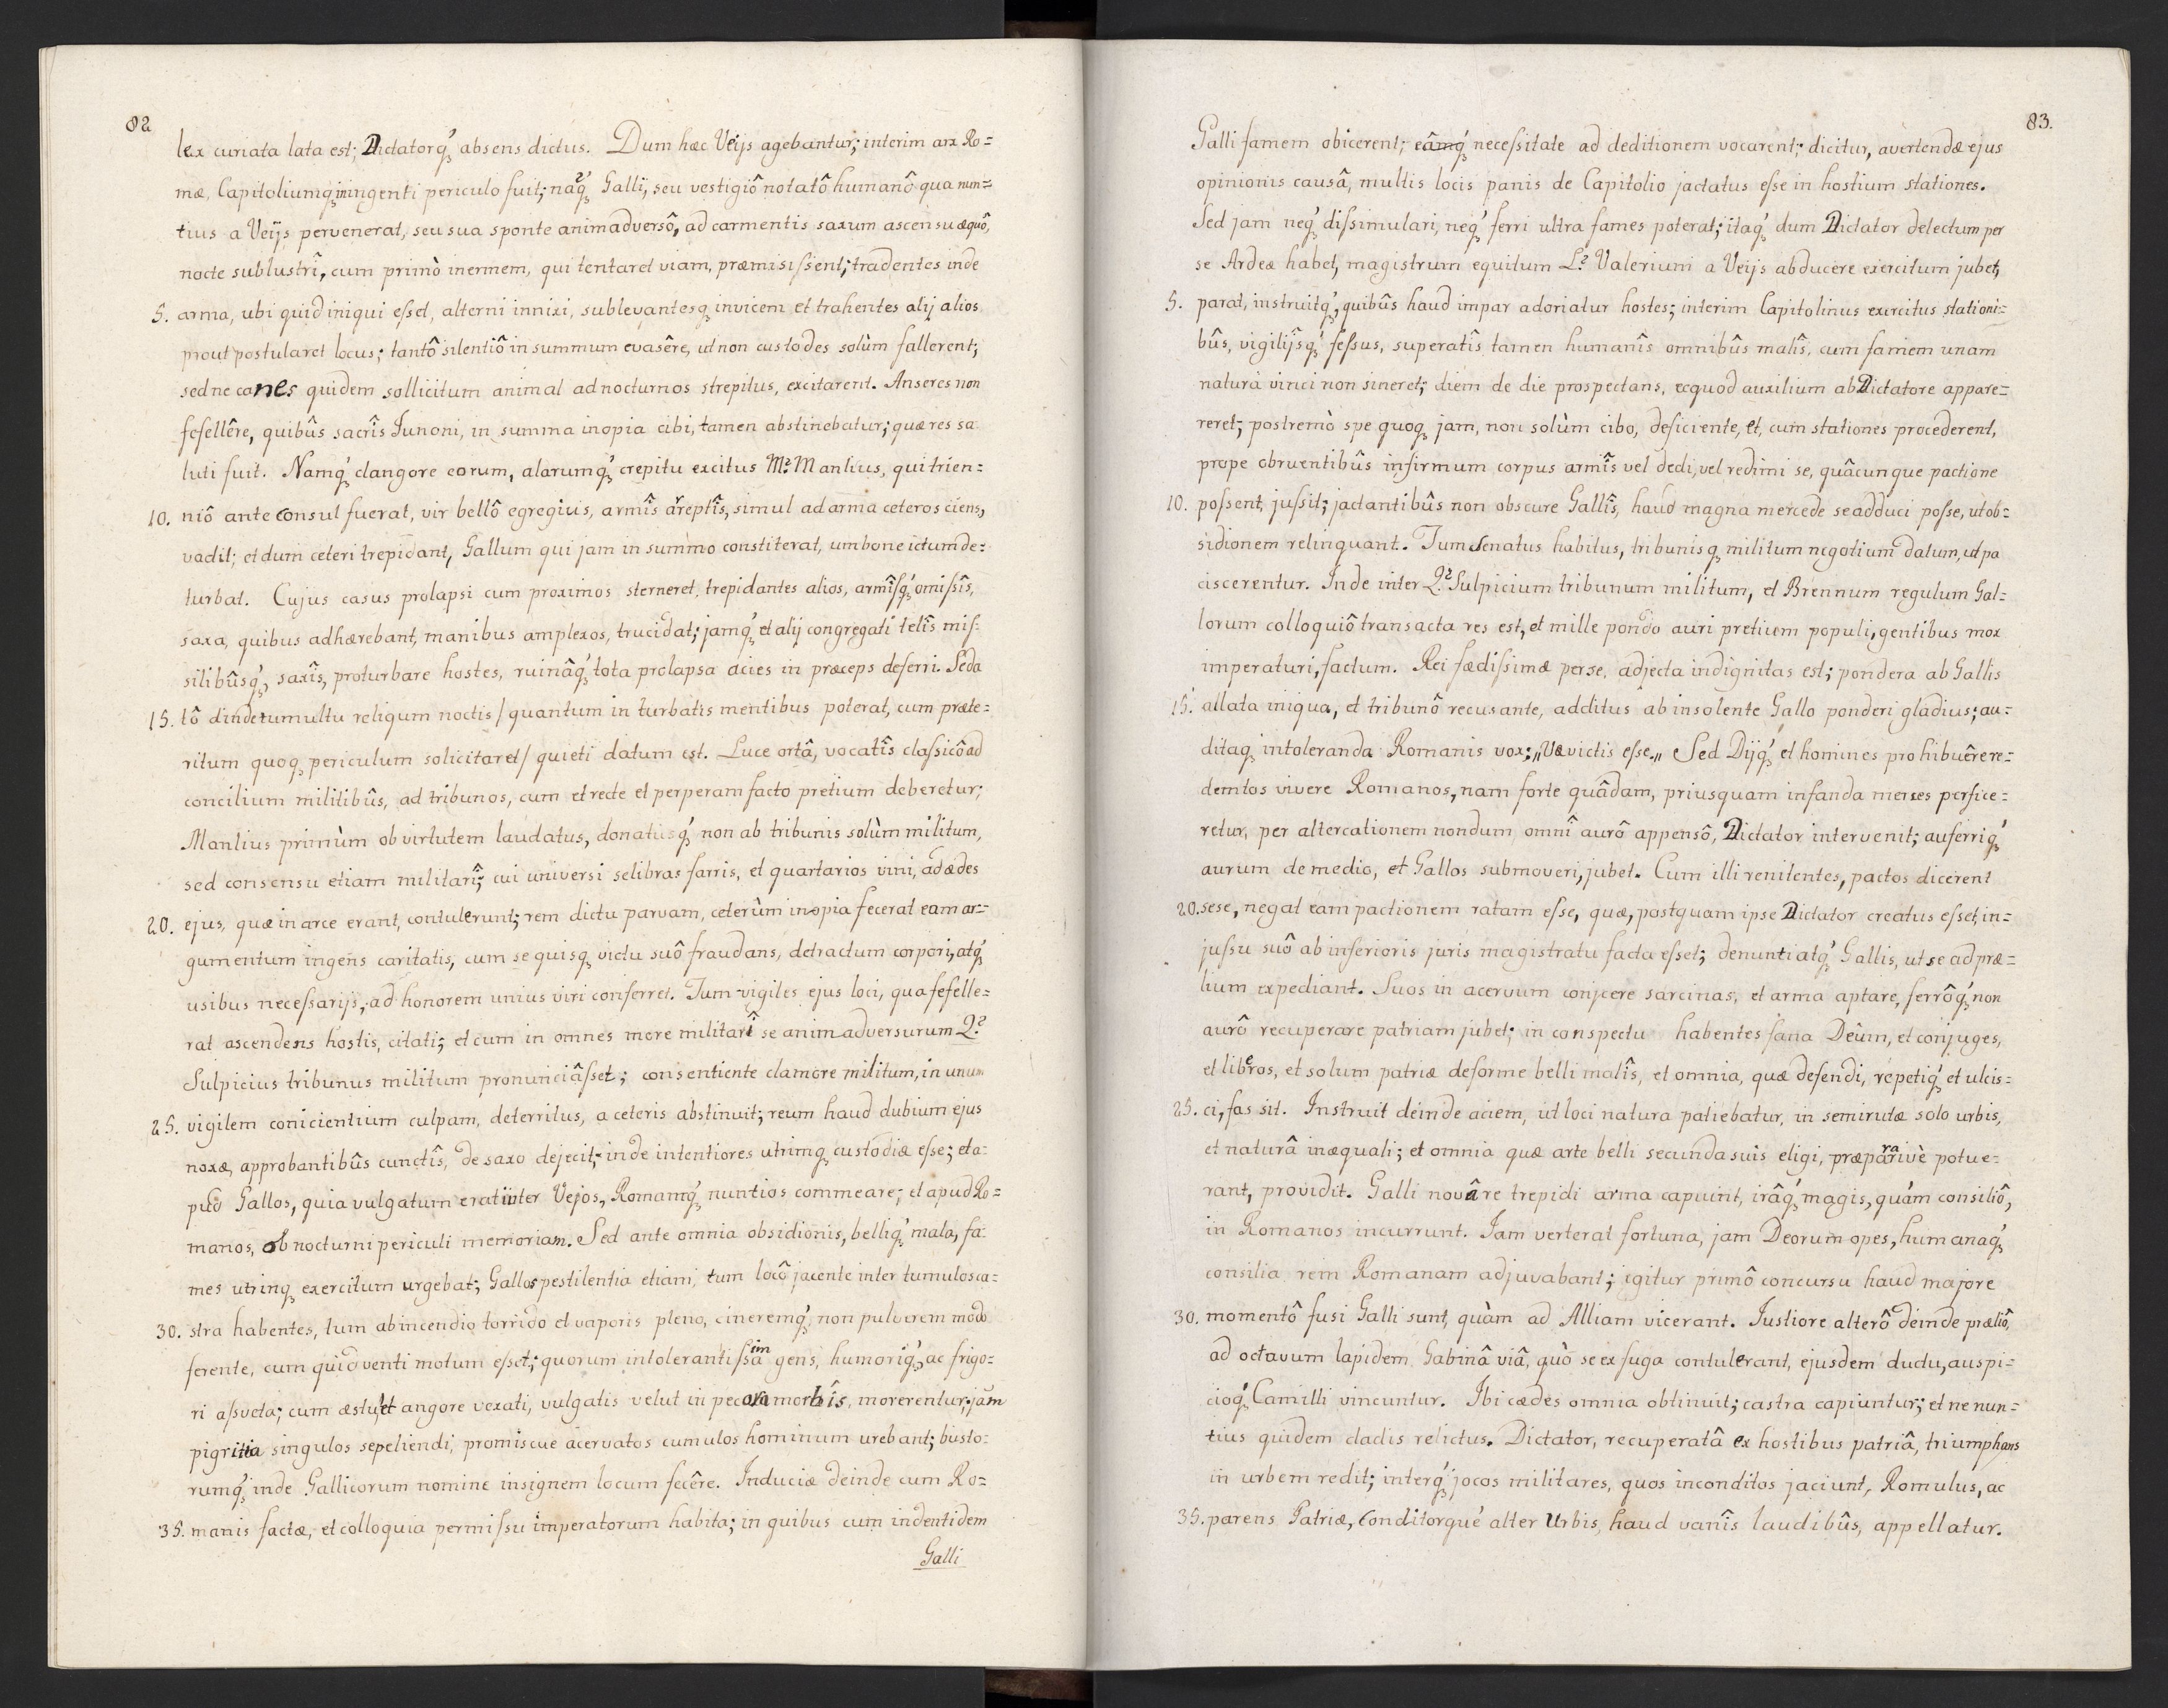 82
lex curiata lata est; Dictatorq́ꝫ absens dictus. Dum hæc Veijs agebantur; interim arx Ro=
mæ, Capitoliumqꝫ in ingenti periculo fuit; náqꝫ Galli, seu vestigiô notatô humanô qua nun=
tius a Veijs pervenerat, seu sua sponte animadversô, ad carmentis saxum ascensu æquô,
nocte sublustrî, cum primò inermem, qui tentaret viam, præmisissent; tradentes inde
5. arma, ubi quid iniqui esset, alterni innixi, sublevantesqꝫ invicem et trahentes alij alios
prout postularet locus; tantô silentiô in summum evasêre, ut non custodes solùm fallerent;
sed ne canes quidem sollicitum animal ad nocturnos strepitus, excitarent. Anseres non
fefellêre, quibûs sacrîs Junoni, in summa inopia cibi, tamen abstinebatur; quæ res sa
luti fuit. Namq́ꝫ clangore eorum, alarumq́ꝫ crepitu excitus M: Manlius, qui trien=
10. niô ante Consul fuerat, vir bellô egregius, armîs areptîs, simul ad arma ceteros ciens,
vadit; et dum ceteri trepidant, Gallum qui jam in summo constiterat, umbone ictum de=
turbat. Cujus casus prolapsi cum proximos sterneret, trepidantes alios, armîsq́ꝫ omissîs,
saxa, quibus adhærebant, manibus amplexos, trucidat; jamq́ꝫ et alij congregati telîs mis=
silibûsq́ꝫ, saxîs, proturbare hostes, ruinâq́ꝫ tota prolapsa acies in præceps deferri. Seda
15. tô dinde tumultu reliqum noctis / quantum in turbatis mentibus poterat, cum præte=
ritum quoqꝫ periculum solicitaret / quieti datum est. Luce ortâ, vocatîs classicô ad
concilium militibûs, ad tribunos, cum et recte et perperam facto pretium deberetur;
Manlius primùm ob virtutem laudatus, donatusq́ꝫ non ab tribunis solùm militum,
sed consensu etiam militarî; cui universi selibras farris, et quartarios vini, ad ædes
20. ejus, quæ in arce erant, contulerunt; rem dictu parvam, ceterùm inopia fecerat eam ar=
gumentum ingens caritatis, cum se quisqꝫ victu suô fraudans, detractum corpori, atq́ꝫ
usibus necessarijs, ad honorem unius viri conferret. Tum vigiles ejus loci, qua fefelle=
rat ascendens hostis, citati; et cum in omnes more militarî se animadversurum Q:
Sulpicius tribunus militum pronunciâsset; consentiente clamore militum, in unum
25. vigilem conicientium culpam, deterritus, a ceteris abstinuit; reum haud dubium ejus
noxæ, approbantibûs cunctîs, de saxo dejecit; inde intentiores utrimqꝫ custodiæ esse; et a=
pud Gallos, quia vulgatum erat inter Vejos, Romamq́ꝫ nuntios commeare; et apud Ro=
manos, ob nocturni periculi memoriam. Sed ante omnia obsidionis, belliq́ꝫ mala, fa=
mes utrinqꝫ exercitum urgebat; Gallos pestilentia etiam, tum locô jacente inter tumulos ca=
30. stra habentes, tum ab incendio torrido et vaporis pleno, cineremq́ꝫ non pulverem modo
ferente, cum quid venti motum esset; quorum intolerantissima gens, humoriq́ꝫ, ac frigo=
ri assveta; cum æstu, et angore vexati, vulgatis velut in pecora morbîs, morerentur; jam
pigritia singulos sepeliendi, promiscue acervatos cumulos hominum urebant; busto=
rumq́ꝫ inde Gallicorum nomine insignem locum fecêre. Induciæ deinde cum Ro=
35. manis factæ, et colloquia permissu imperatorum habita; in quibus cum indentidem
Galli
83.
Galli famem obicerent; eâmq́ꝫ necessitate ad deditionem vocarent; dicitur, avertendæ ejus
opinionis causâ, multis locis panis de Capitolio jactatus esse in hostium stationes.
Sed jam neq́ꝫ dissimulari, neq́ꝫ ferri ultra fames poterat; itaq́ꝫ dum Dictator delectum per
se Ardeæ habet, magistrum equitum L: Valerium a Veijs abducere exercitum jubet,
5. parat, instruitq́ꝫ, quibûs haud impar adoriatur hostes; interim Capitolinus exercitus stationi=
bûs, vigilijsq́ꝫ fessus, superatîs tamen humanîs omnibûs malîs, cum famem unam
natura vinci non sineret; diem de die prospectans, ecquod auxilium ab Dictatore appare=
reret; postremò spe quoqꝫ jam, non solùm cibo, deficiente, et, cum stationes procederent,
prope obruentibûs infirmum corpus armîs vel dedi, vel redimi se, quâcunque pactione
10. possent, jussit; jactantibûs non obscure Gallîs, haud magna mercede se adduci posse, ut ob=
sidionem relinquant. Tum Senatus habitus, tribunisqꝫ militum negotium datum, ut pa
ciscerentur. Inde inter Q: Sulpicium tribunum militum, et Brennum regulum Gal=
lorum colloquiô transacta res est, et mille pondo auri pretium populi, gentibus mox
imperaturi, factum. Rei fædissimæ per se, adjecta indignitas est; pondera ab Gallis
15. allata iniqua, et tribunô recusante, additus ab insolente Gallo ponderi gladius; au=
ditaqꝫ intoleranda Romanis vox: „Væ victis esse.„ Sed Dijq́ꝫ et homines prohibuêre re=
demtos vivere Romanos, nam forte quâdam, priusquam infanda merses perfice=
retur, per altercationem nondum omnî aurô appensô, Dictator intervenit; auferriq́ꝫ
aurum de medio, et Gallos submoveri, jubet. Cum illi renitentes, pactos dicerent
20. sese, negat eam pactionem ratam esse, quæ, postquam ipse Dictator creatus esset, in=
jussu suô ab inferioris juris magistratu facta esset; denuntiatq́ꝫ Gallis, ut se ad præ=
lium expediant. Suos in acervum conjcere sarcinas, et arma aptare, ferrôq́ꝫ non
aurô recuperare patriam jubet; in conspectu habentes fana Deûm, et conjuges,
et liberos, et solum patriæ deforme belli malîs, et omnia, quæ defendi, repetiq́ꝫ et ulcis=
25. ci, fas sit. Instruit deinde aciem, ut loci natura patiebatur, in semirutæ solo urbis,
et naturâ inæquali; et omnia quæ arte belli secunda suis eligi, præpararivè potue=
rant, providit. Galli novâ re trepidi arma capiunt, irâq́ꝫ magis, quám consiliô,
in Romanos incurrunt. Jam verterat fortuna, jam Deorum opes, humanaq́ꝫ
consilia rem Romanam adjuvabant; igitur primô concursu haud majore
30. momentô fusi Galli sunt, quàm ad Alliam vicerant. Justiore alterô deinde præliô,
ad octavum lapidem Gabinâ viâ, quò se ex fuga contulerant, ejusdem ductu, auspi=
cioq́ꝫ Camilli vincuntur. Ibi cædes omnia obtinuit; castra capiuntur; et ne nun=
tius quidem cladis relictus. Dictator, recuperatâ ex hostibus patriâ, triumphans
in urbem redit; interq́ꝫ jocos militares, quos inconditos jaciunt, Romulus, ac
35. parens Patriæ, Conditorque alter Urbis, haud vanîs laudibûs, appellatur.